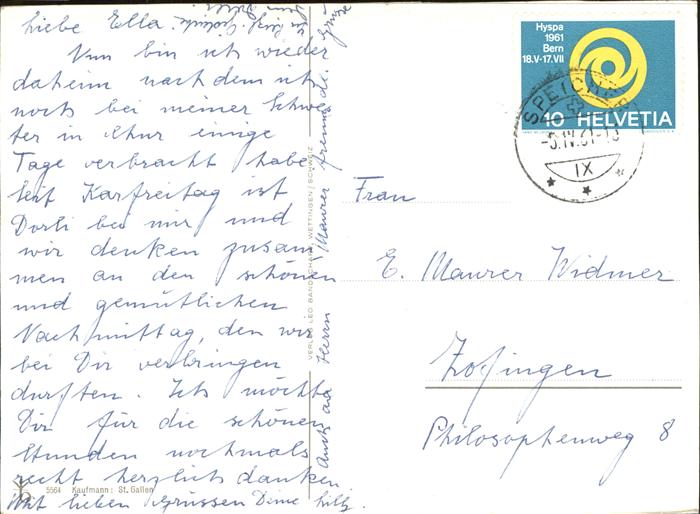 Liebe Ella.
Nun bin ich wieder
daheim nach dem ich
noch bei meiner Schwes
ter in Chur einige
Tage verbracht habe
Seit Karfreitag ist
Dorli bei mir und
wir denken zusam
men an den schönen
und gemütlichen
Nachmittag, den wir
bei Dir verbringen
durften. Ich möchte
Dir für die schönen
Stunden nochmals
recht herzlich danken
Mit lieben Grüssen Deine Lilly.
Auch an Herrn Maurer freundl. Grüsse
5564 Kaufmann: St. Gallen
VERLAG LEO BANDSCHAPP WETTINGEN / SCHWEIZ
Hyspa
1961
Bern
18.V-17.VII
10 HELVETIA
SPEICHER
IX
Frau
E. Maurer Widmer
Zofingen
Philosophenweg 8